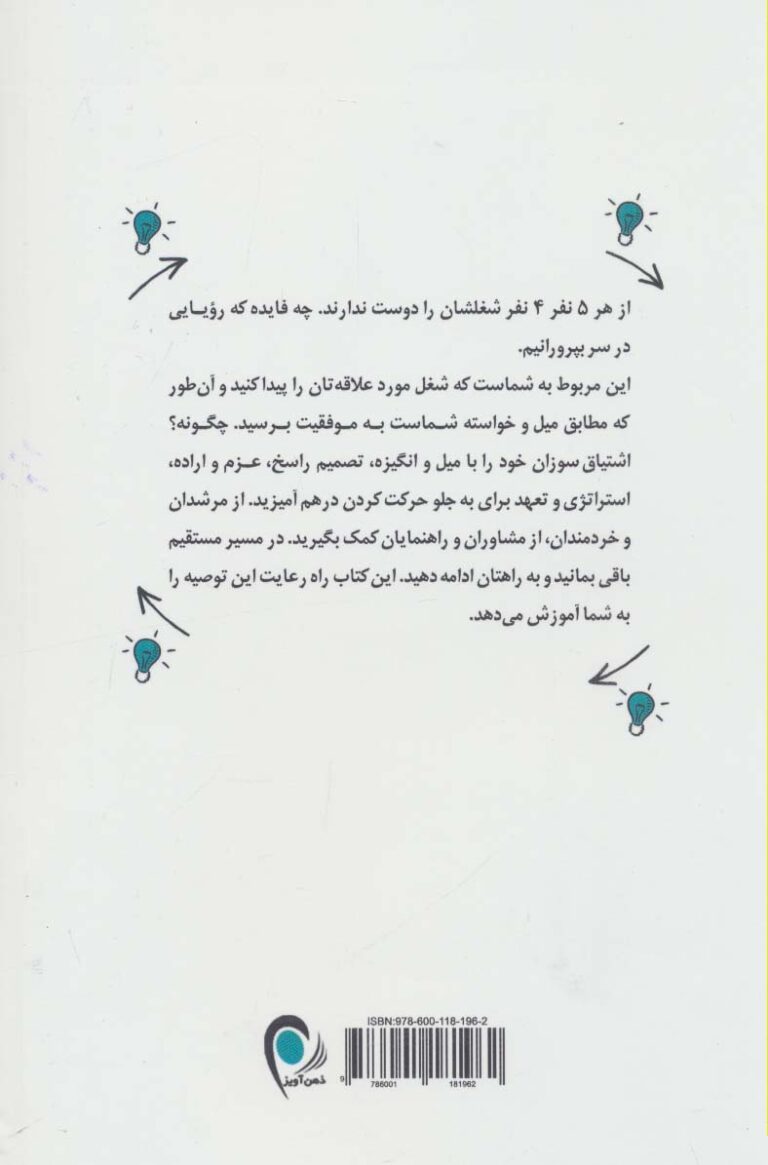 از هر ۵ نفر ۴ نفر شغلشان را دوست ندارند. چه فایده که رؤیایی
در سر بپرورانیم.
این مربوط به شماست که شغل مورد علاقه‌تان را پیدا کنید و آن‌طور
که مطابق میل و خواسته شماست به موفقیت برسید. چگونه؟
اشتیاق سوزان خود را با میل و انگیزه، تصمیم راسخ، عزم و اراده،
استراتژی و تعهد برای به جلو حرکت کردن درهم آمیزید. از مرشدان
و خردمندان، از مشاوران و راهنمایان کمک بگیرید. در مسیر مستقیم
باقی بمانید و به راهتان ادامه دهید. این کتاب راه رعایت این توصیه را
به شما آموزش می‌دهد.
ISBN:978-600-118-196-2
ذهن‌آویز
9 786001 181962